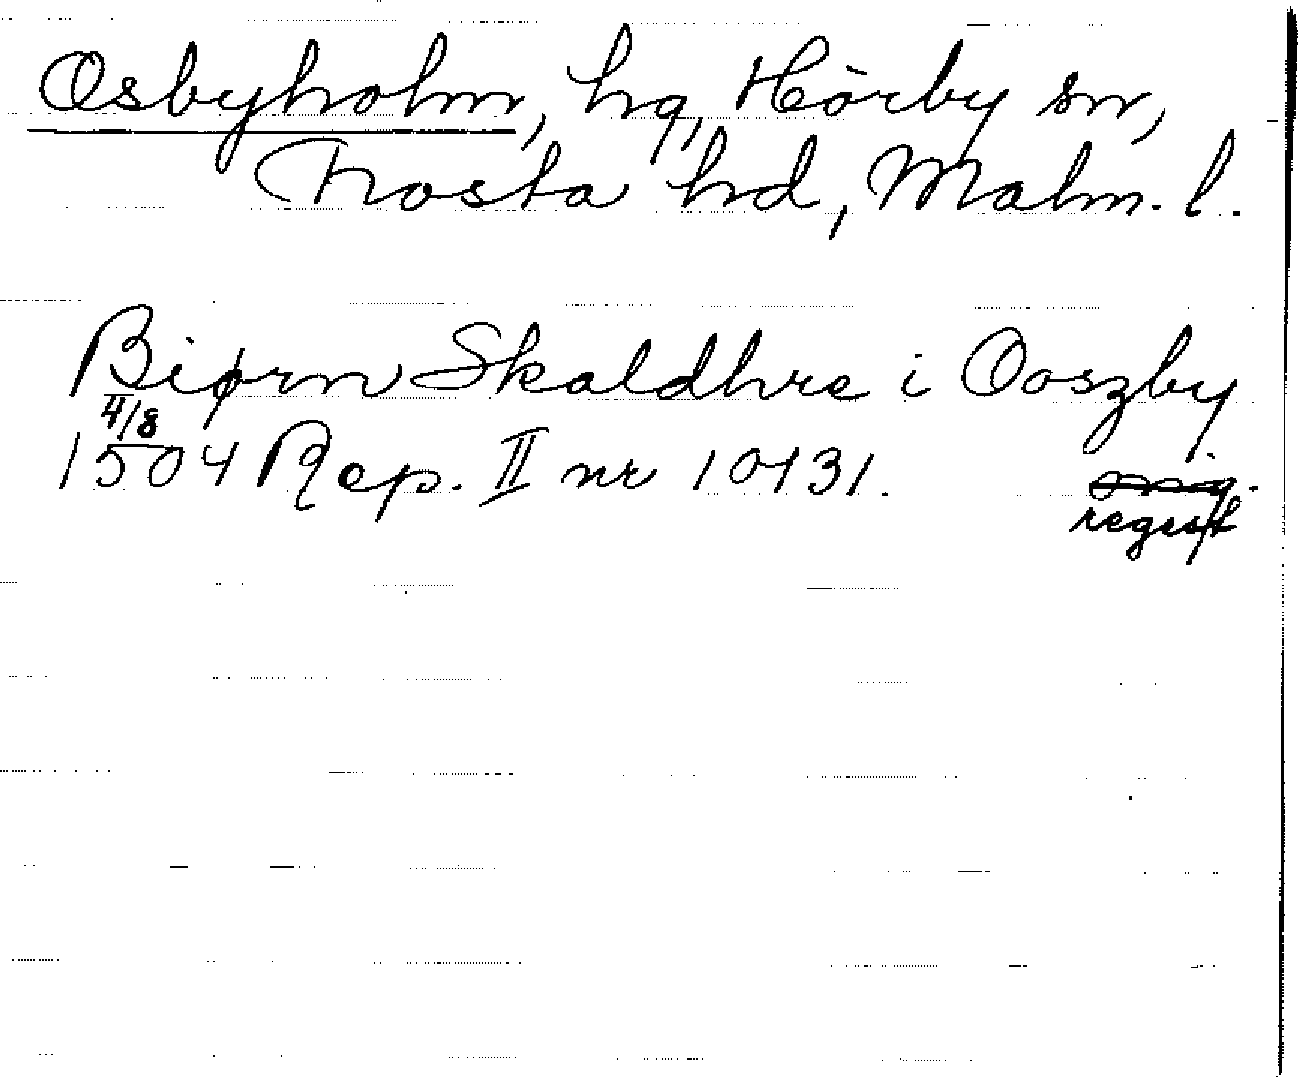 Osbyholm, hg, Hörby sn,
Frosta hd, Malm. l.
Biørn Skaldhre i Ooszby
4/8
1504 Rep. II nr 10431.
regest